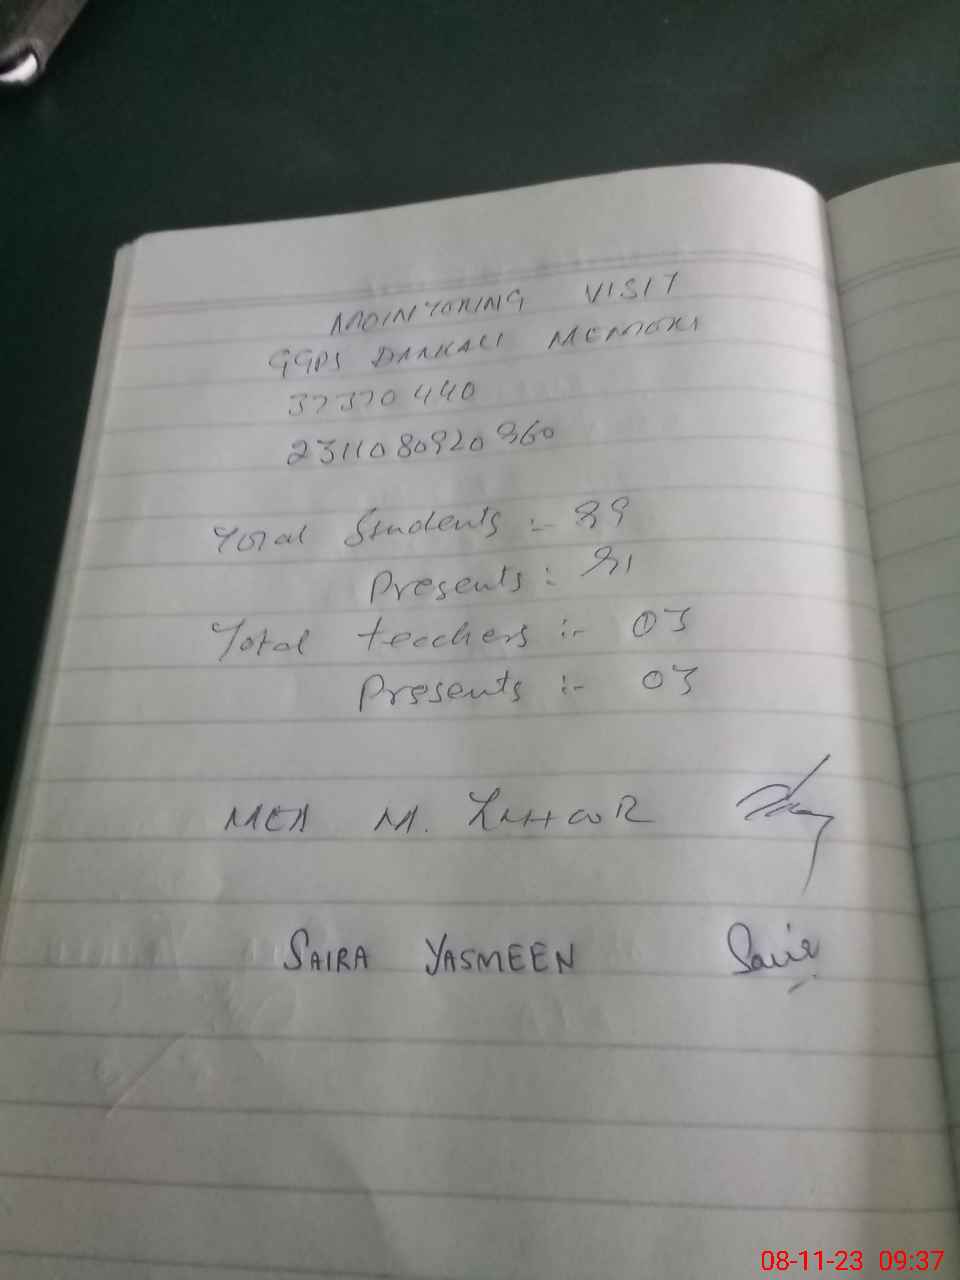 MOINYORING VISIT
GGPS DARKALI MEMORI
37370440
2311080920860
Total Students :- 89
Presents : 81
Total teachers :- 03
Presents :- 03
MEA M.
SAIRA YASMEEN Saira
08-11-23 09:37